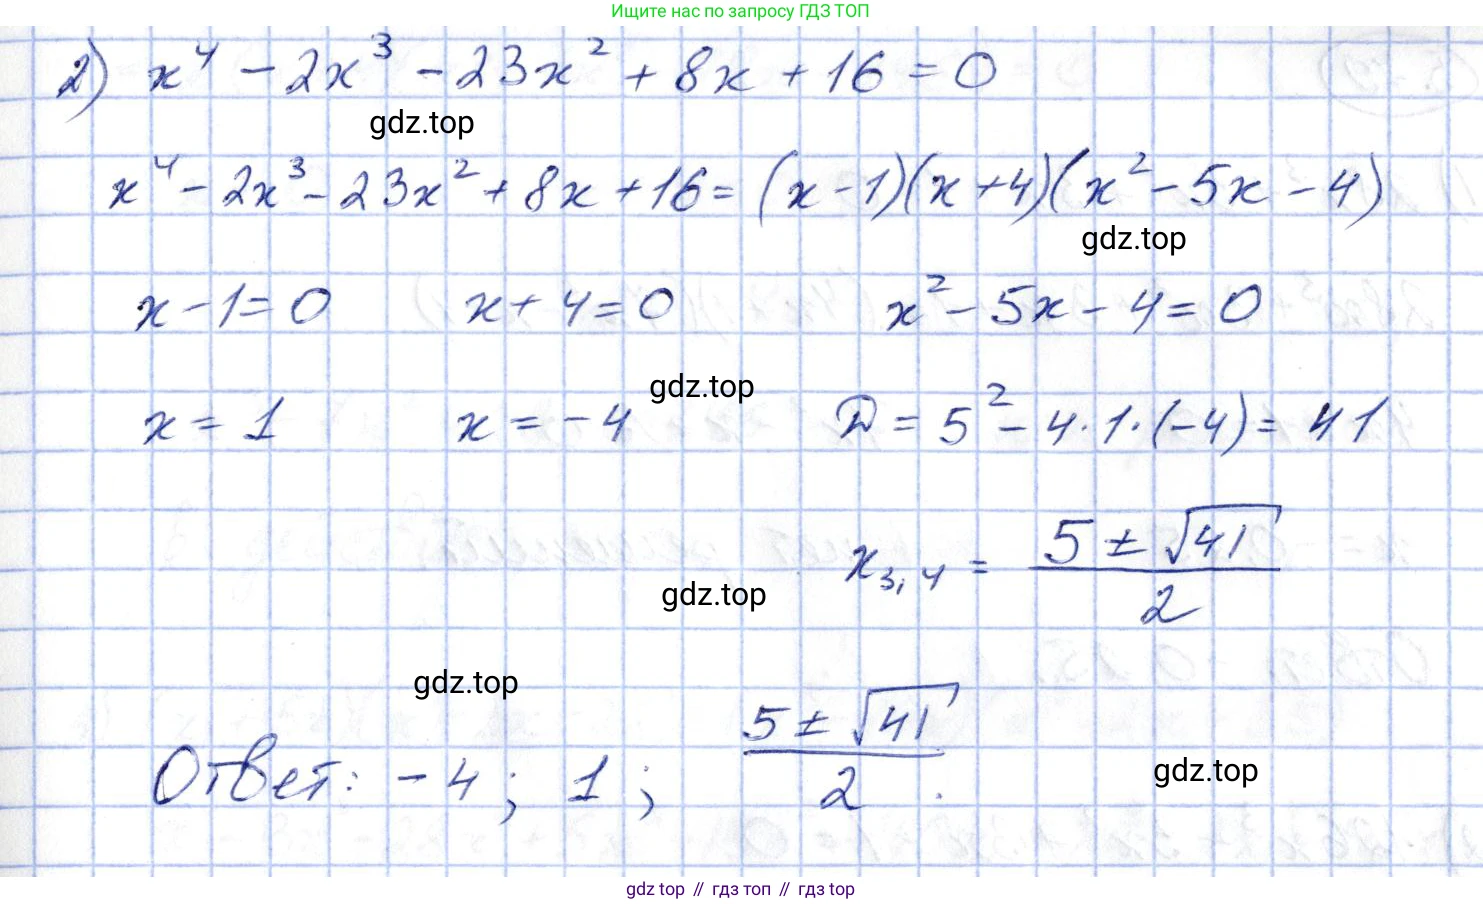 Ищите нас по запросу ГДЗ ТОП
2) x⁴ - 2x³ - 23x² + 8x + 16 = 0
gdz.top
x⁴ - 2x³ - 23x² + 8x + 16 = (x - 1)(x + 4)(x² - 5x - 4)
gdz.top
x - 1 = 0 x + 4 = 0 x² - 5x - 4 = 0
gdz.top
x = 1 x = -4 D = 5² - 4·1·(-4) = 41
x₃,₄ = (5 ± √41)/2
gdz.top
gdz.top
Ответ: -4; 1; (5 ± √41)/2.
gdz.top
gdz top // гдз топ // гдз top